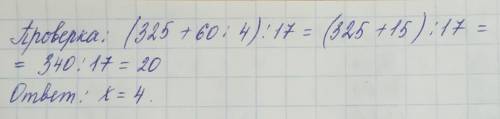 Проверка: (325 + 60 : 4) : 17 = (325 + 15) : 17 =
= 340 : 17 = 20
Ответ: x = 4.